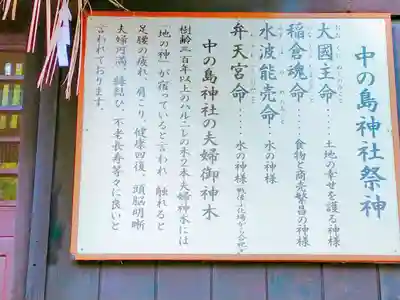 中の島神社祭神
大國主命……土地の幸せを護る神様
稲倉魂命……食物と商売繁昌の神様
水波能売命……水の神様
弁天宮命……水の神様
中の島神社の夫婦御神木
樹齢三百年以上のハルニレの木2本夫婦神木には
「地の神」が宿っていると言われ 触れると
足腰の疲れ、肩こり、健康回復、頭脳明晰
夫婦円満、縁結び、不老長寿等々に良いと
言われております。